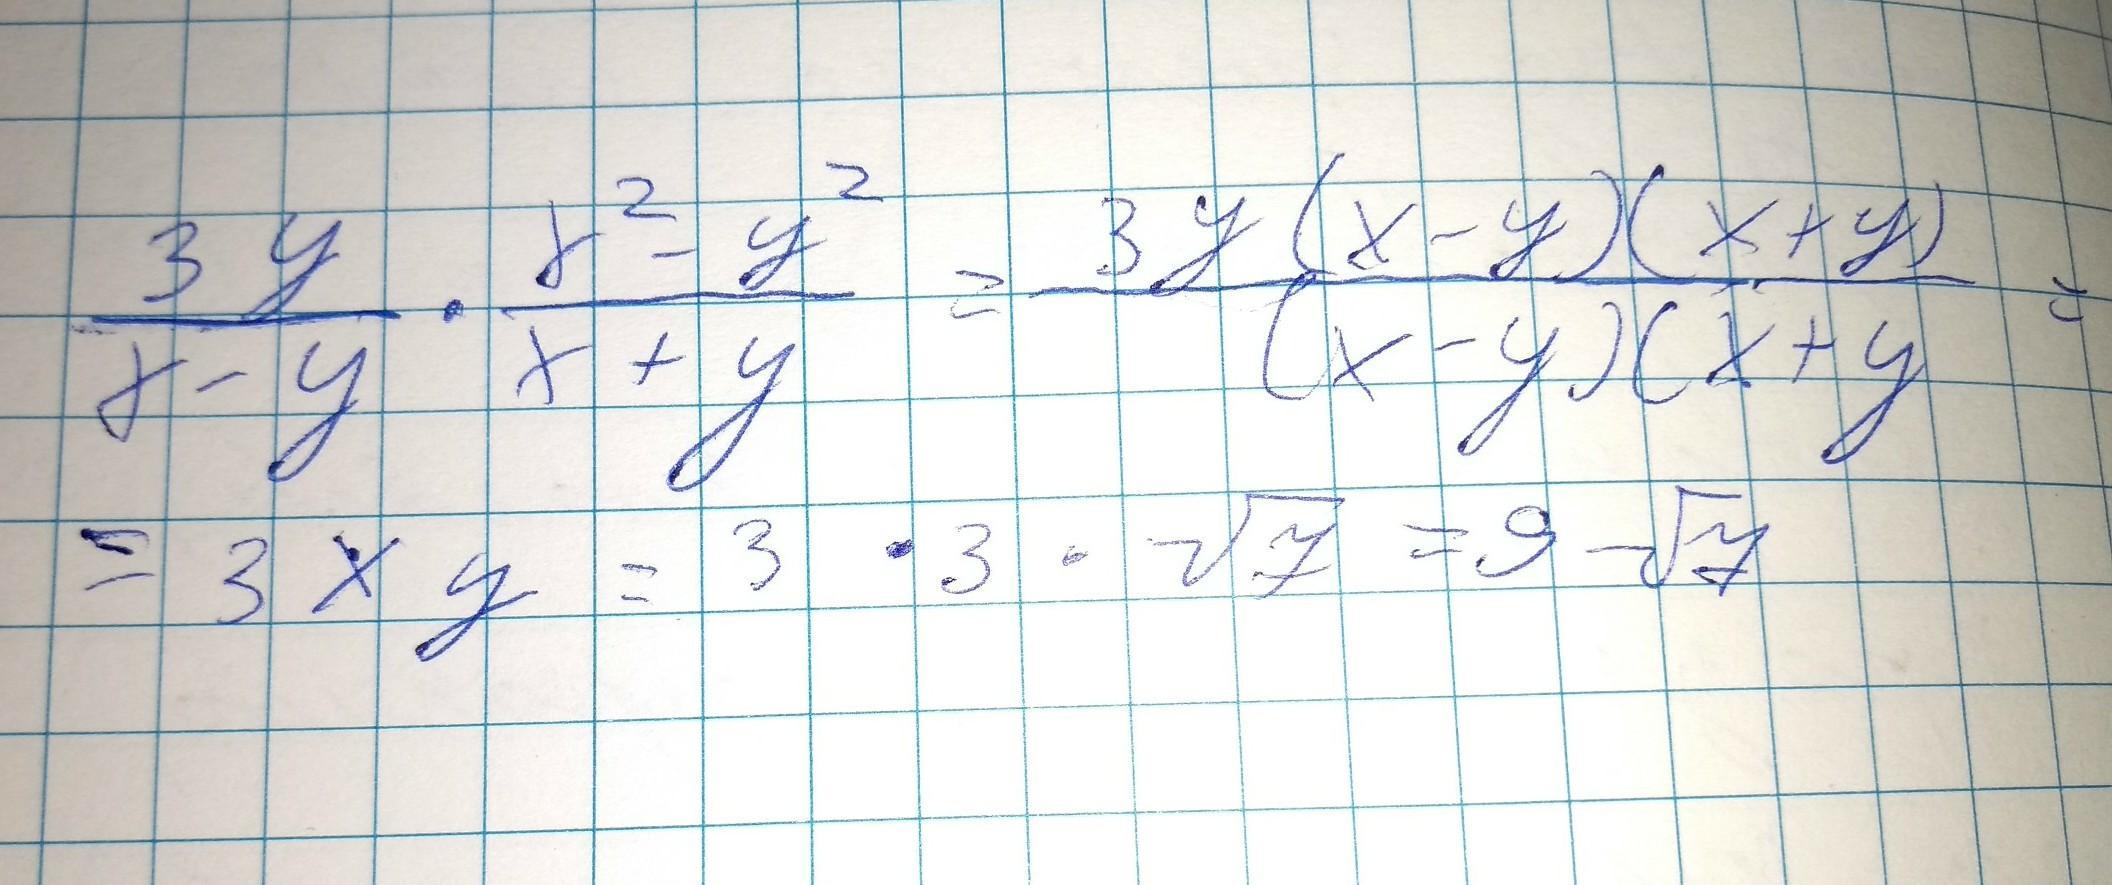 3y/x-y · x²-y²/x+y = 3y(x-y)(x+y)/(x-y)(x+y =
= 3xy = 3 · 3 · √7 = 9√7